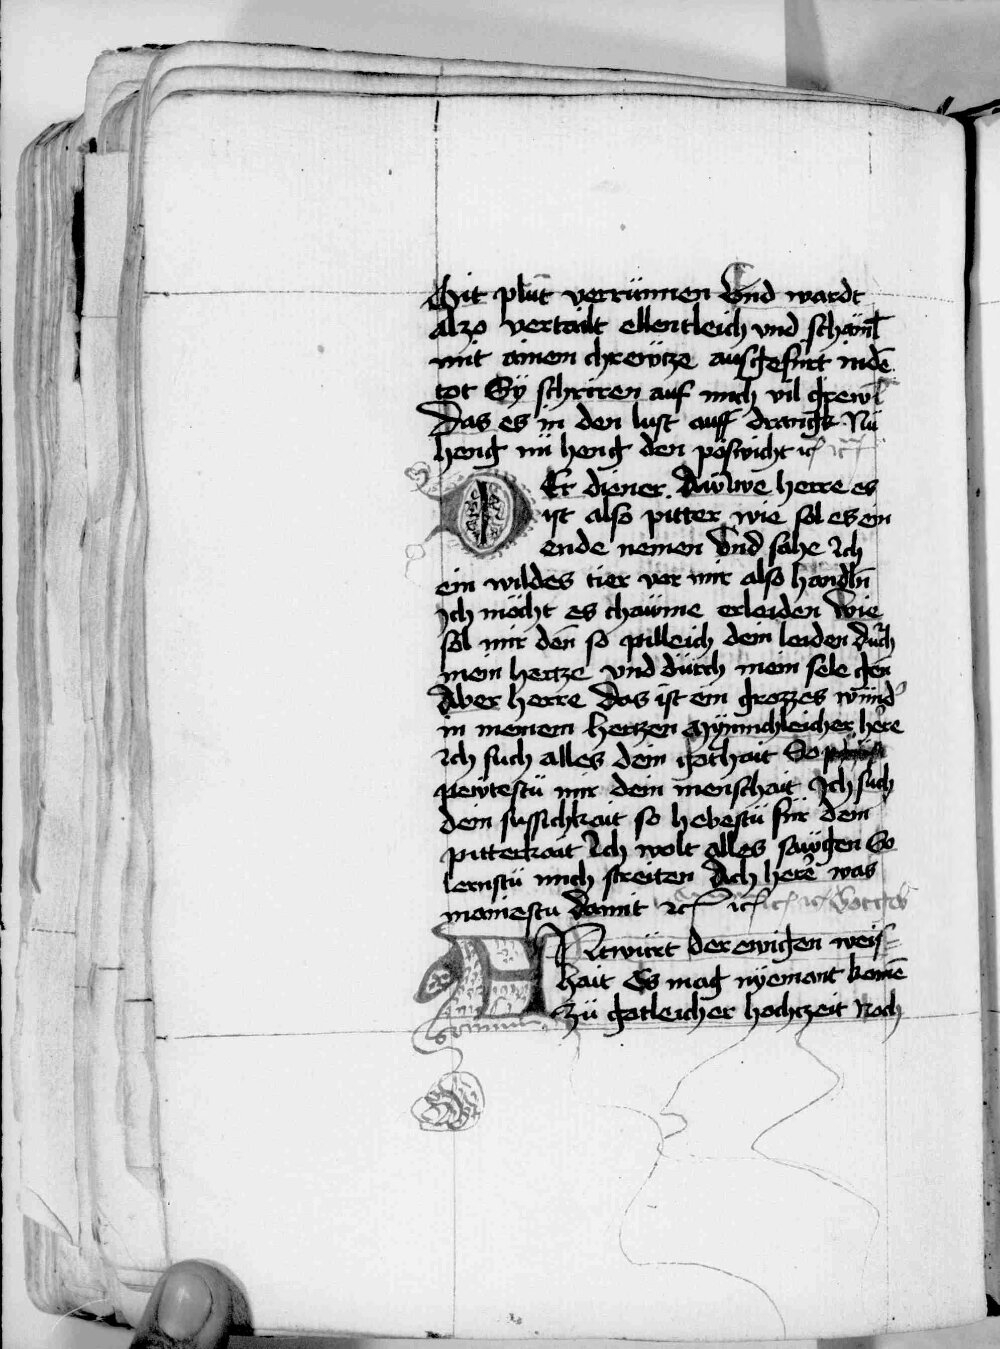 Mit plüt verrünnen Vnd wardt
alzo vertailt ellentleich vnd schäml̄
mit ainem chrewtze ausgefürt in dē
tot Sÿ schriren auf mich vil grewl̄
Das es in den luft auff drangk Nü
heng nü heng den pöswicht ꝛc ꝛc
DEr diener. Awwe herre es
ist also pitter wie sol es ein
ende nemen Vnd sähe Ich
ein wildes tier vor mir also handln̄
Ich möcht es chaüme erleiden Wie
sol mir den̄ so pilleich dein leiden dürch
mein hertze vnd dürch mein sele gen
Aber herre Das ist ein grozzes wünd'
in meinem hertzen Mynnichleicher herre
Ich such alles dein gothait So
pewtestü mir dein menschait Ich such
dein sussichkait so hebestü für dein
pitterkait Ich wolt alles sawgen So
lernstü mich streiten Ach herre was
mainestu damit ꝛc ꝛc ꝛc ꝛc
ANtwürt der ewigen weis=
hait Es mag nyemant komē
Zü gotleicher hochtzeit Noch